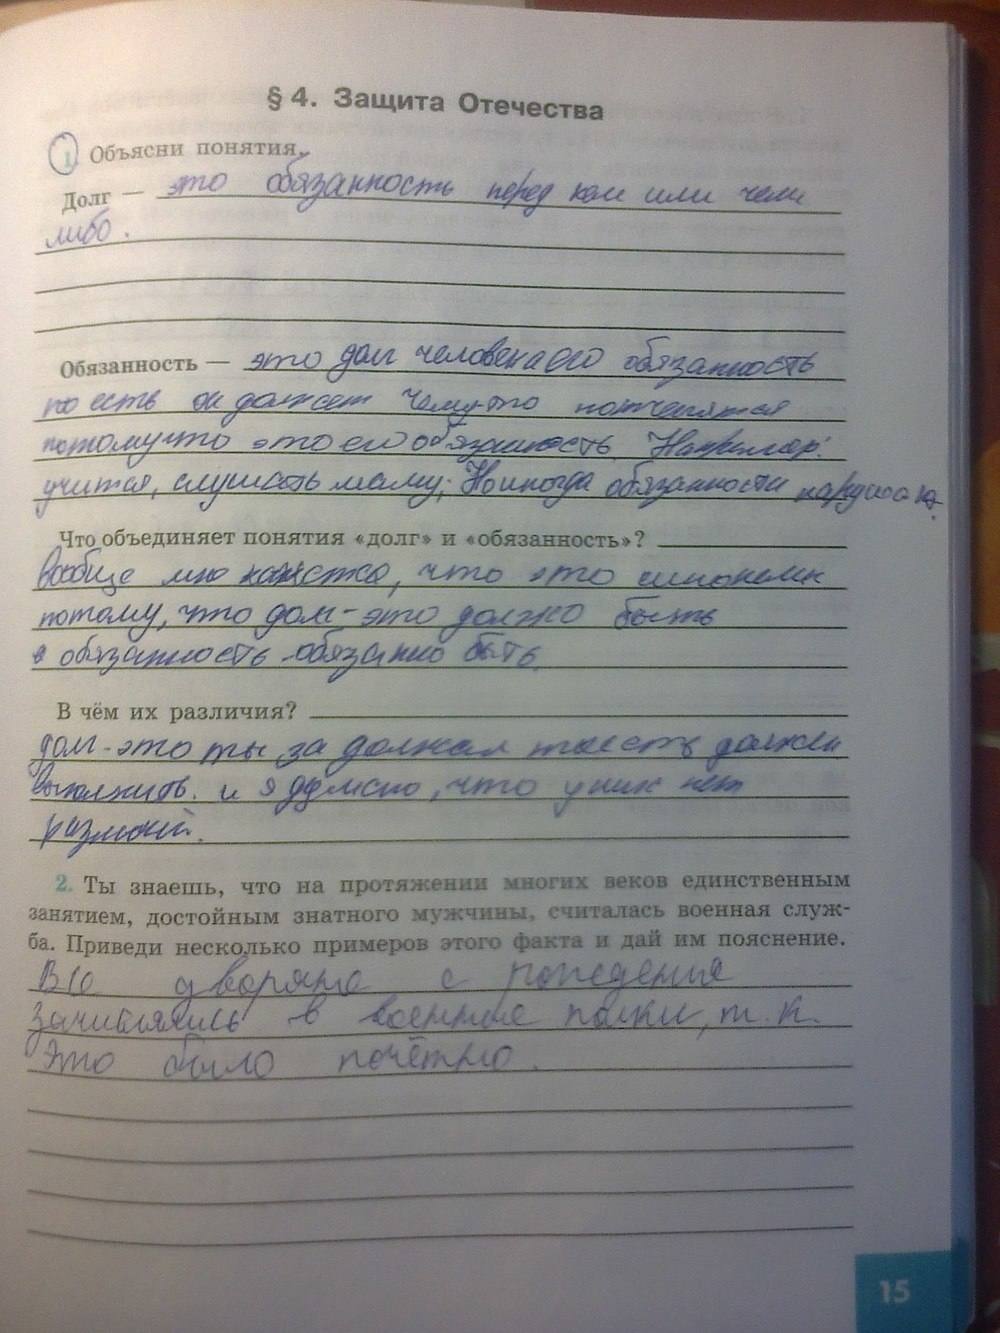 § 4. Защита Отечества
1. Объясни понятия.
Долг — это обязанность перед кем или чем
либо.
Обязанность — это долг человека его обязанность
то есть он должен чему-то
потомучто это его обязанность. Например:
учится, слушать маму; Но иногда обязанности
Что объединяет понятия «долг» и «обязанность»?
Вообще мне кажется, что это синонемы
потому, что долг - это должно быть
а обязанность - обязанно быть.
В чём их различия?
долг - это ты за должал тоесть должен
выполнить. и я думаю, что у них нет
2. Ты знаешь, что на протяжении многих веков единственным
занятием, достойным знатного мужчины, считалась военная служ-
ба. Приведи несколько примеров этого факта и дай им пояснение.
Все дворяне с рождения
зачислялись в военные полки, т.к.
это было почётно.
15